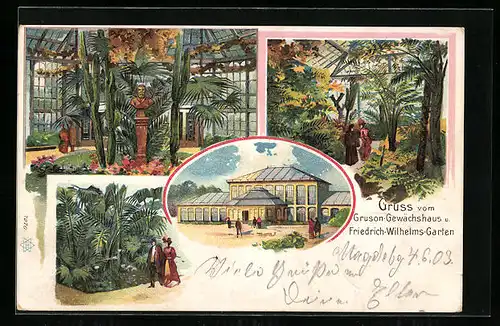 Gruss vom
Gruson-Gewächshaus u.
Friedrich-Wilhelms-Garten
Magdebg 4.6.03.
Viele Grüße
Deine